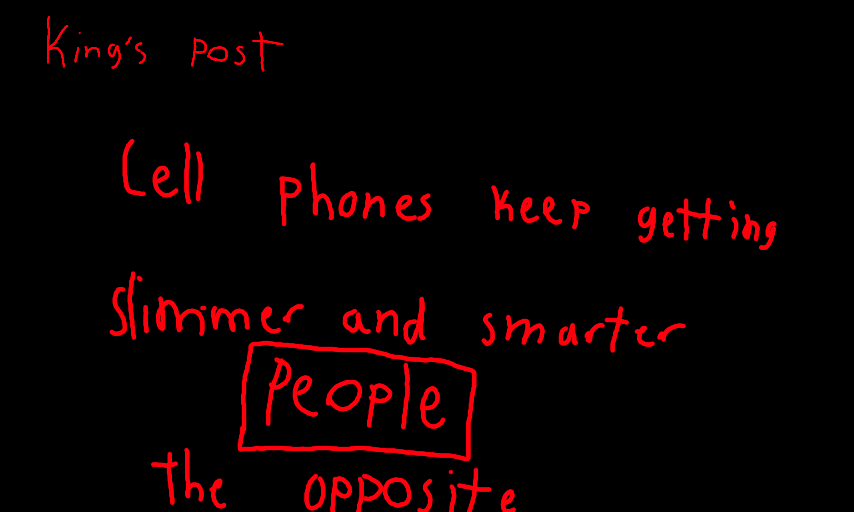 King's post
Cell phones keep getting
slimmer and smarter
People
the opposite